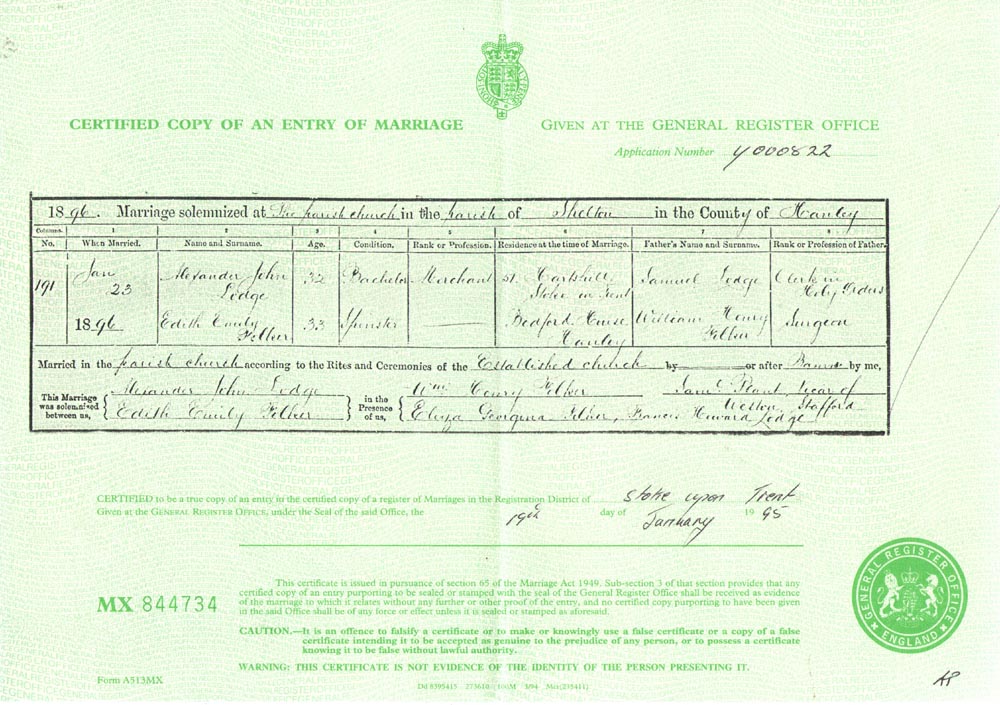 CERTIFIED COPY OF AN ENTRY OF MARRIAGE
GIVEN AT THE GENERAL REGISTER OFFICE
Application Number Y000822
1896. Marriage solemnized at The parish church in the parish of Shelton in the County of Hanley
Columns. 1 2 3 4 5 6 7 8
No. When Married. Name and Surname. Age. Condition. Rank or Profession. Residence at the time of Marriage. Father's Name and Surname. Rank or Profession of Father.
191 Jan 23 Alexander John Lodge 32 Bachelor Merchant Hartshill Stoke on Trent Samuel Lodge Clerk in Holy Orders
1896 Edith Emily Folker 33 Spinster Bedford House Hanley William Henry Folker Surgeon
Married in the parish church according to the Rites and Ceremonies of the Established church by or after Banns by me,
This Marriage was solemnized between us, Alexander John Lodge in the Presence of us, Wm Henry Folker Saml Plant, Vicar of
Edith Emily Folker Eliza Georgina Folker, Francis Howard Lodge Weston, Stafford
CERTIFIED to be a true copy of an entry in the certified copy of a register of Marriages in the Registration District of Stoke upon Trent
Given at the GENERAL REGISTER OFFICE, under the Seal of the said Office, the 19th day of January 1995
This certificate is issued in pursuance of section 65 of the Marriage Act 1949. Sub-section 3 of that section provides that any
certified copy of an entry purporting to be sealed or stamped with the seal of the General Register Office shall be received as evidence
of the marriage to which it relates without any further or other proof of the entry, and no certified copy purporting to have been given
in the said Office shall be of any force or effect unless it is sealed or stamped as aforesaid.
MX 844734
CAUTION.—It is an offence to falsify a certificate or to make or knowingly use a false certificate or a copy of a false
certificate intending it to be accepted as genuine to the prejudice of any person, or to possess a certificate
knowing it to be false without lawful authority.
WARNING: THIS CERTIFICATE IS NOT EVIDENCE OF THE IDENTITY OF THE PERSON PRESENTING IT.
GENERAL REGISTER OFFICE
ENGLAND
Form A513MX
Dd 8395415 273610 100M 3/94 Mcr(235411)
AP